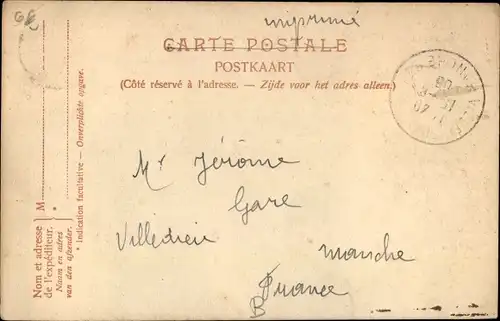 imprimé
CARTE POSTALE
POSTKAART
(Côté réservé à l'adresse. — Zijde voor het adres alleen.)
Mr Jérôme
Gare
Villedieu
Manche
France
B
M
*
Nom et adresse
de l'expéditeur.
Naam en adres
van den afzender.
* Indication facultative — Onverplichte opgave.